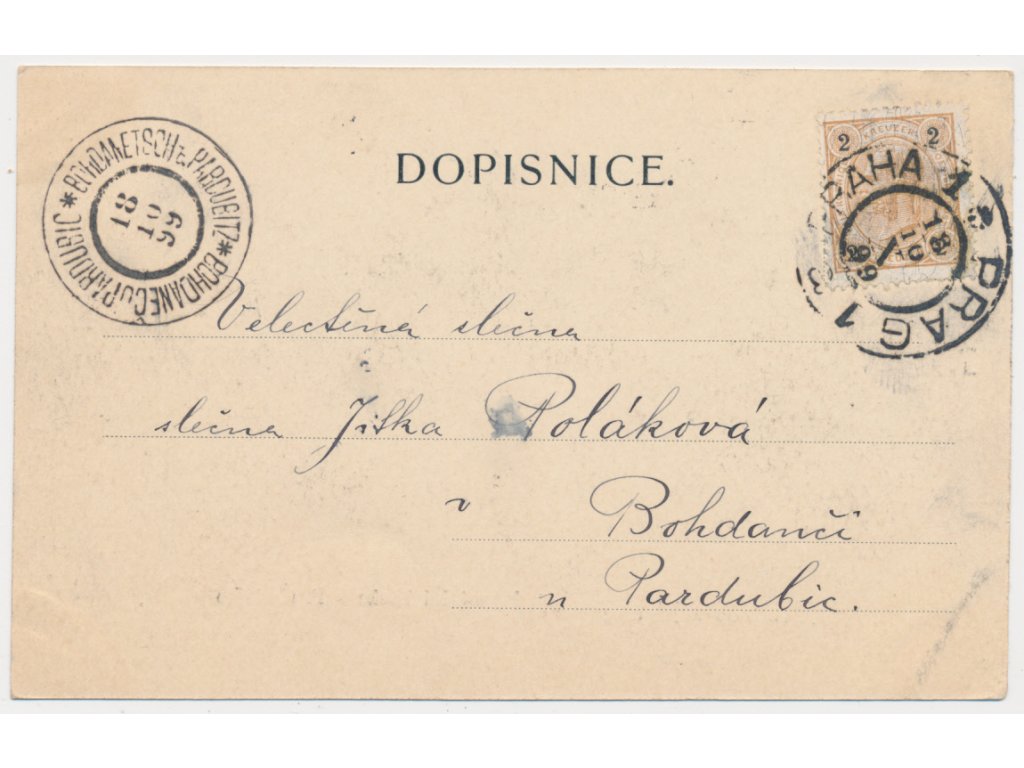 DOPISNICE.
2 KREUZER 2
PRAHA 1 * PRAG 1
18
10
99
BOHDANETSCH b. PARDUBITZ * BOHDANEČ u PARDUBIC *
18
10
99
Velectěná slečna
slečna Jitka Poláková
v Bohdanči
n Pardubic.